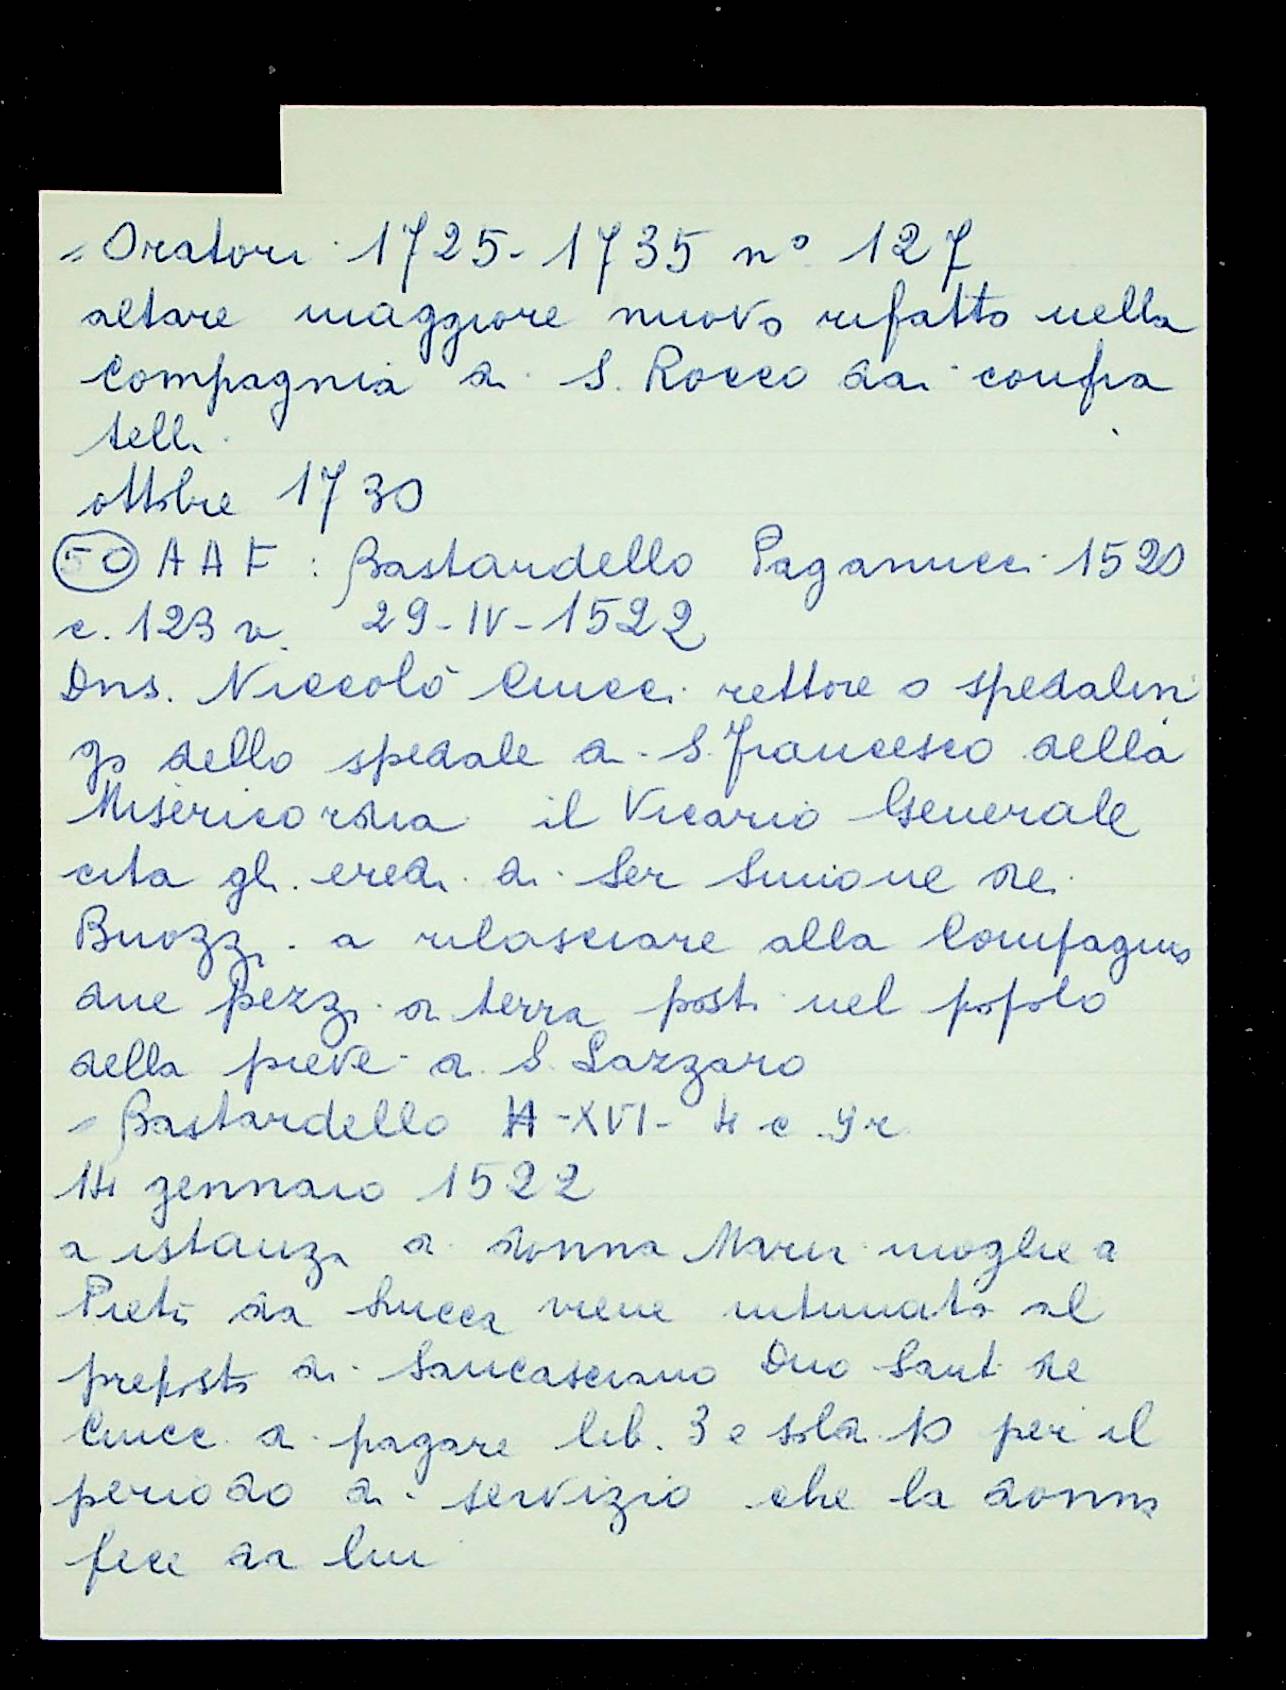 - Oratori 1725-1735 n° 127
altare maggiore nuovo rifatto nella
Compagnia di S. Rocco dai confra
telli
ottobre 1730
50 AAF: Bastardello Paganucci 1520
c. 123 v. 29-IV-1522
Dns. Niccolò Ciucci rettore o spedalin
go dello spedale di S. Francesco della
Misericordia il Vicario Generale
cita gli eredi di Ser Simone de
Buozzi a rilasciare alla Compagnia
due pezzi di terra posti nel popolo
della pieve di S. Lazzaro
- Bastardello H-XVI-4 c 9r
14 gennaio 1522
a istanza di donna Maria moglie di
Pieto da Lucca viene intimato al
preposto di Sancasciano Dno Santi de
Ciucci a pagare lib. 3 e soldi 10 per il
periodo di servizio che la donna
fece da lui